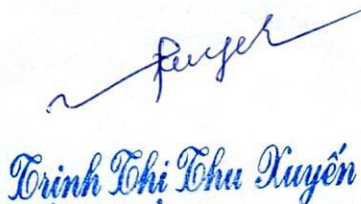 Xuyến
Trịnh Thị Thu Xuyến